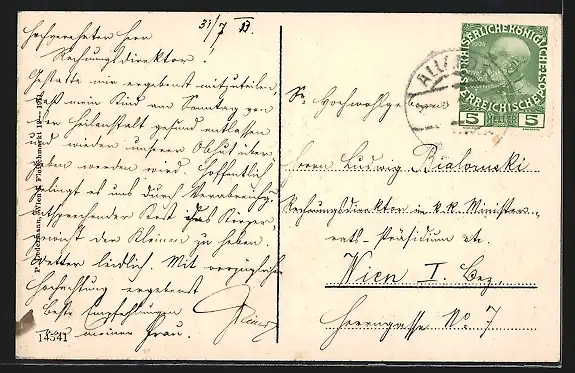 31/7 13.
Hochverehrter Herr
Rechnungsdirektor!
Gestatte mir ergebenst mitzuteilen,
daß mein Kind am Sonntag von
der Heilanstalt gesund entlassen
und wieder unserer Obhut über-
geben werden wird. Hoffentlich
gelingt es uns durch Verabreichg.
entsprechender Kost das Körper-
gewicht der Kleinen zu heben.
Wetter leidlich. Mit vorzüglicher
Hochachtung ergebenst
Beste Empfehlungen
von meiner Frau.
14541
P. Ledermann, Wien I, Fleischmarkt 12
KAISERLICHE KÖNIGLICHE
ÖSTERREICHISCHE
5 HELLER 5
Sr Hochwohlgeboren
Herrn Ludwig Bialonski
Rechnungsdirektor im k.k. Minister-
rats-Präsidium etc.
Wien I. Bez.
Herrengasse No 7